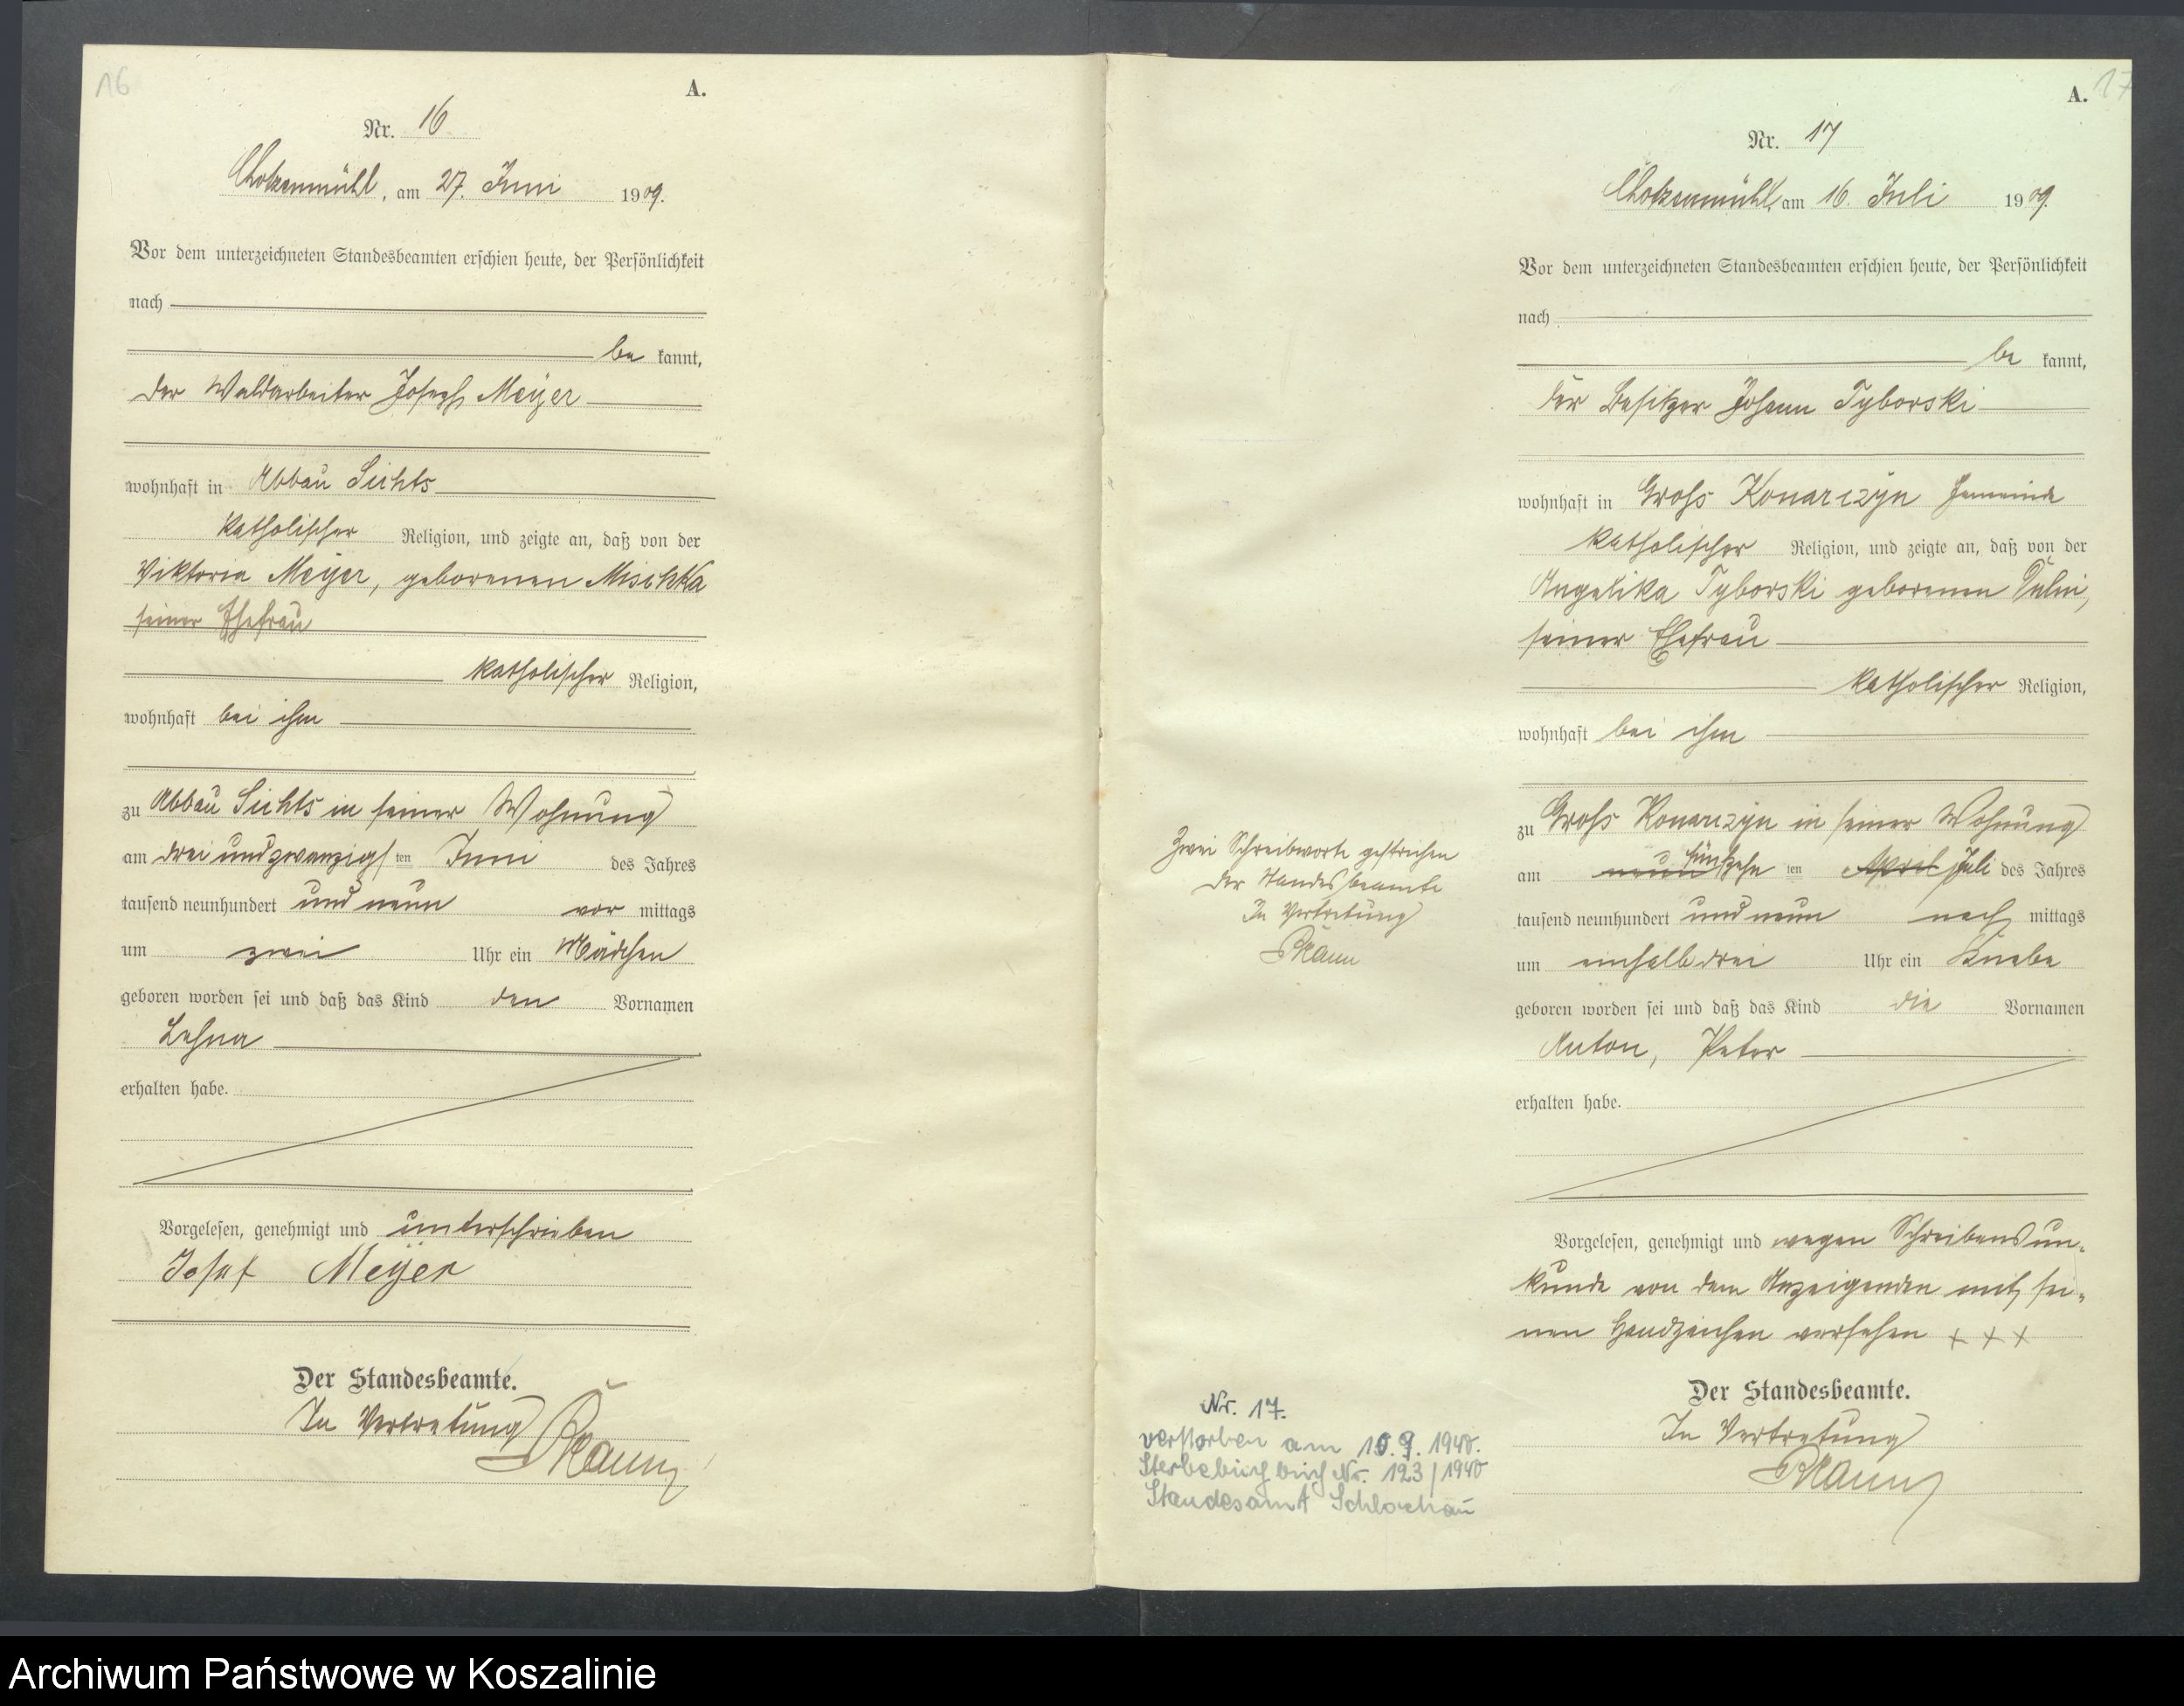 16
A.
Nr. 16
Chotzenmühl, am 27. Juni 1909.
Vor dem unterzeichneten Standesbeamten erschien heute, der Persönlichkeit
nach
be kannt,
der Waldarbeiter Joseph Meyer
wohnhaft in Abbau Sichts
katholischer Religion, und zeigte an, daß von der
Viktoria Meyer, geborenen Mischka
seiner Ehefrau
katholischer Religion,
wohnhaft bei ihm
zu Abbau Sichts in seiner Wohnung
am drei und zwanzigsten Juni des Jahres
tausend neunhundert und neun vor mittags
um zwei Uhr ein Mädchen
geboren worden sei und daß das Kind den Vornamen
erhalten habe.
Vorgelesen, genehmigt und unterschrieben
Josef Meyer
Der Standesbeamte.
In Vertretung
17
A.
Nr. 17
Chotzenmühl, am 16. Juli 1909.
Vor dem unterzeichneten Standesbeamten erschien heute, der Persönlichkeit
nach
be kannt,
der Besitzer Johann Tyborski
wohnhaft in Groß Konarczyn Gemeinde
katholischer Religion, und zeigte an, daß von der
Angelika Tyborski geborenen
seiner Ehefrau
katholischer Religion,
wohnhaft bei ihm
zu Groß Konarczyn in seiner Wohnung
am neun fünfzehn ten April Juli des Jahres
tausend neunhundert und neun nach mittags
um einhalb drei Uhr ein Knabe
geboren worden sei und daß das Kind die Vornamen
Anton, Peter
erhalten habe.
Vorgelesen, genehmigt und wegen Schreibensun-
kunde von dem Anzeigenden mit sei-
nen Handzeichen versehen + + +
Der Standesbeamte.
In Vertretung
Zwei Schreibworte gestrichen
Der Standesbeamte
In Vertretung
Nr. 17.
verstorben am 10.9.1940.
Nr. 123/1940
Standesamt Schlochau
Archiwum Państwowe w Koszalinie